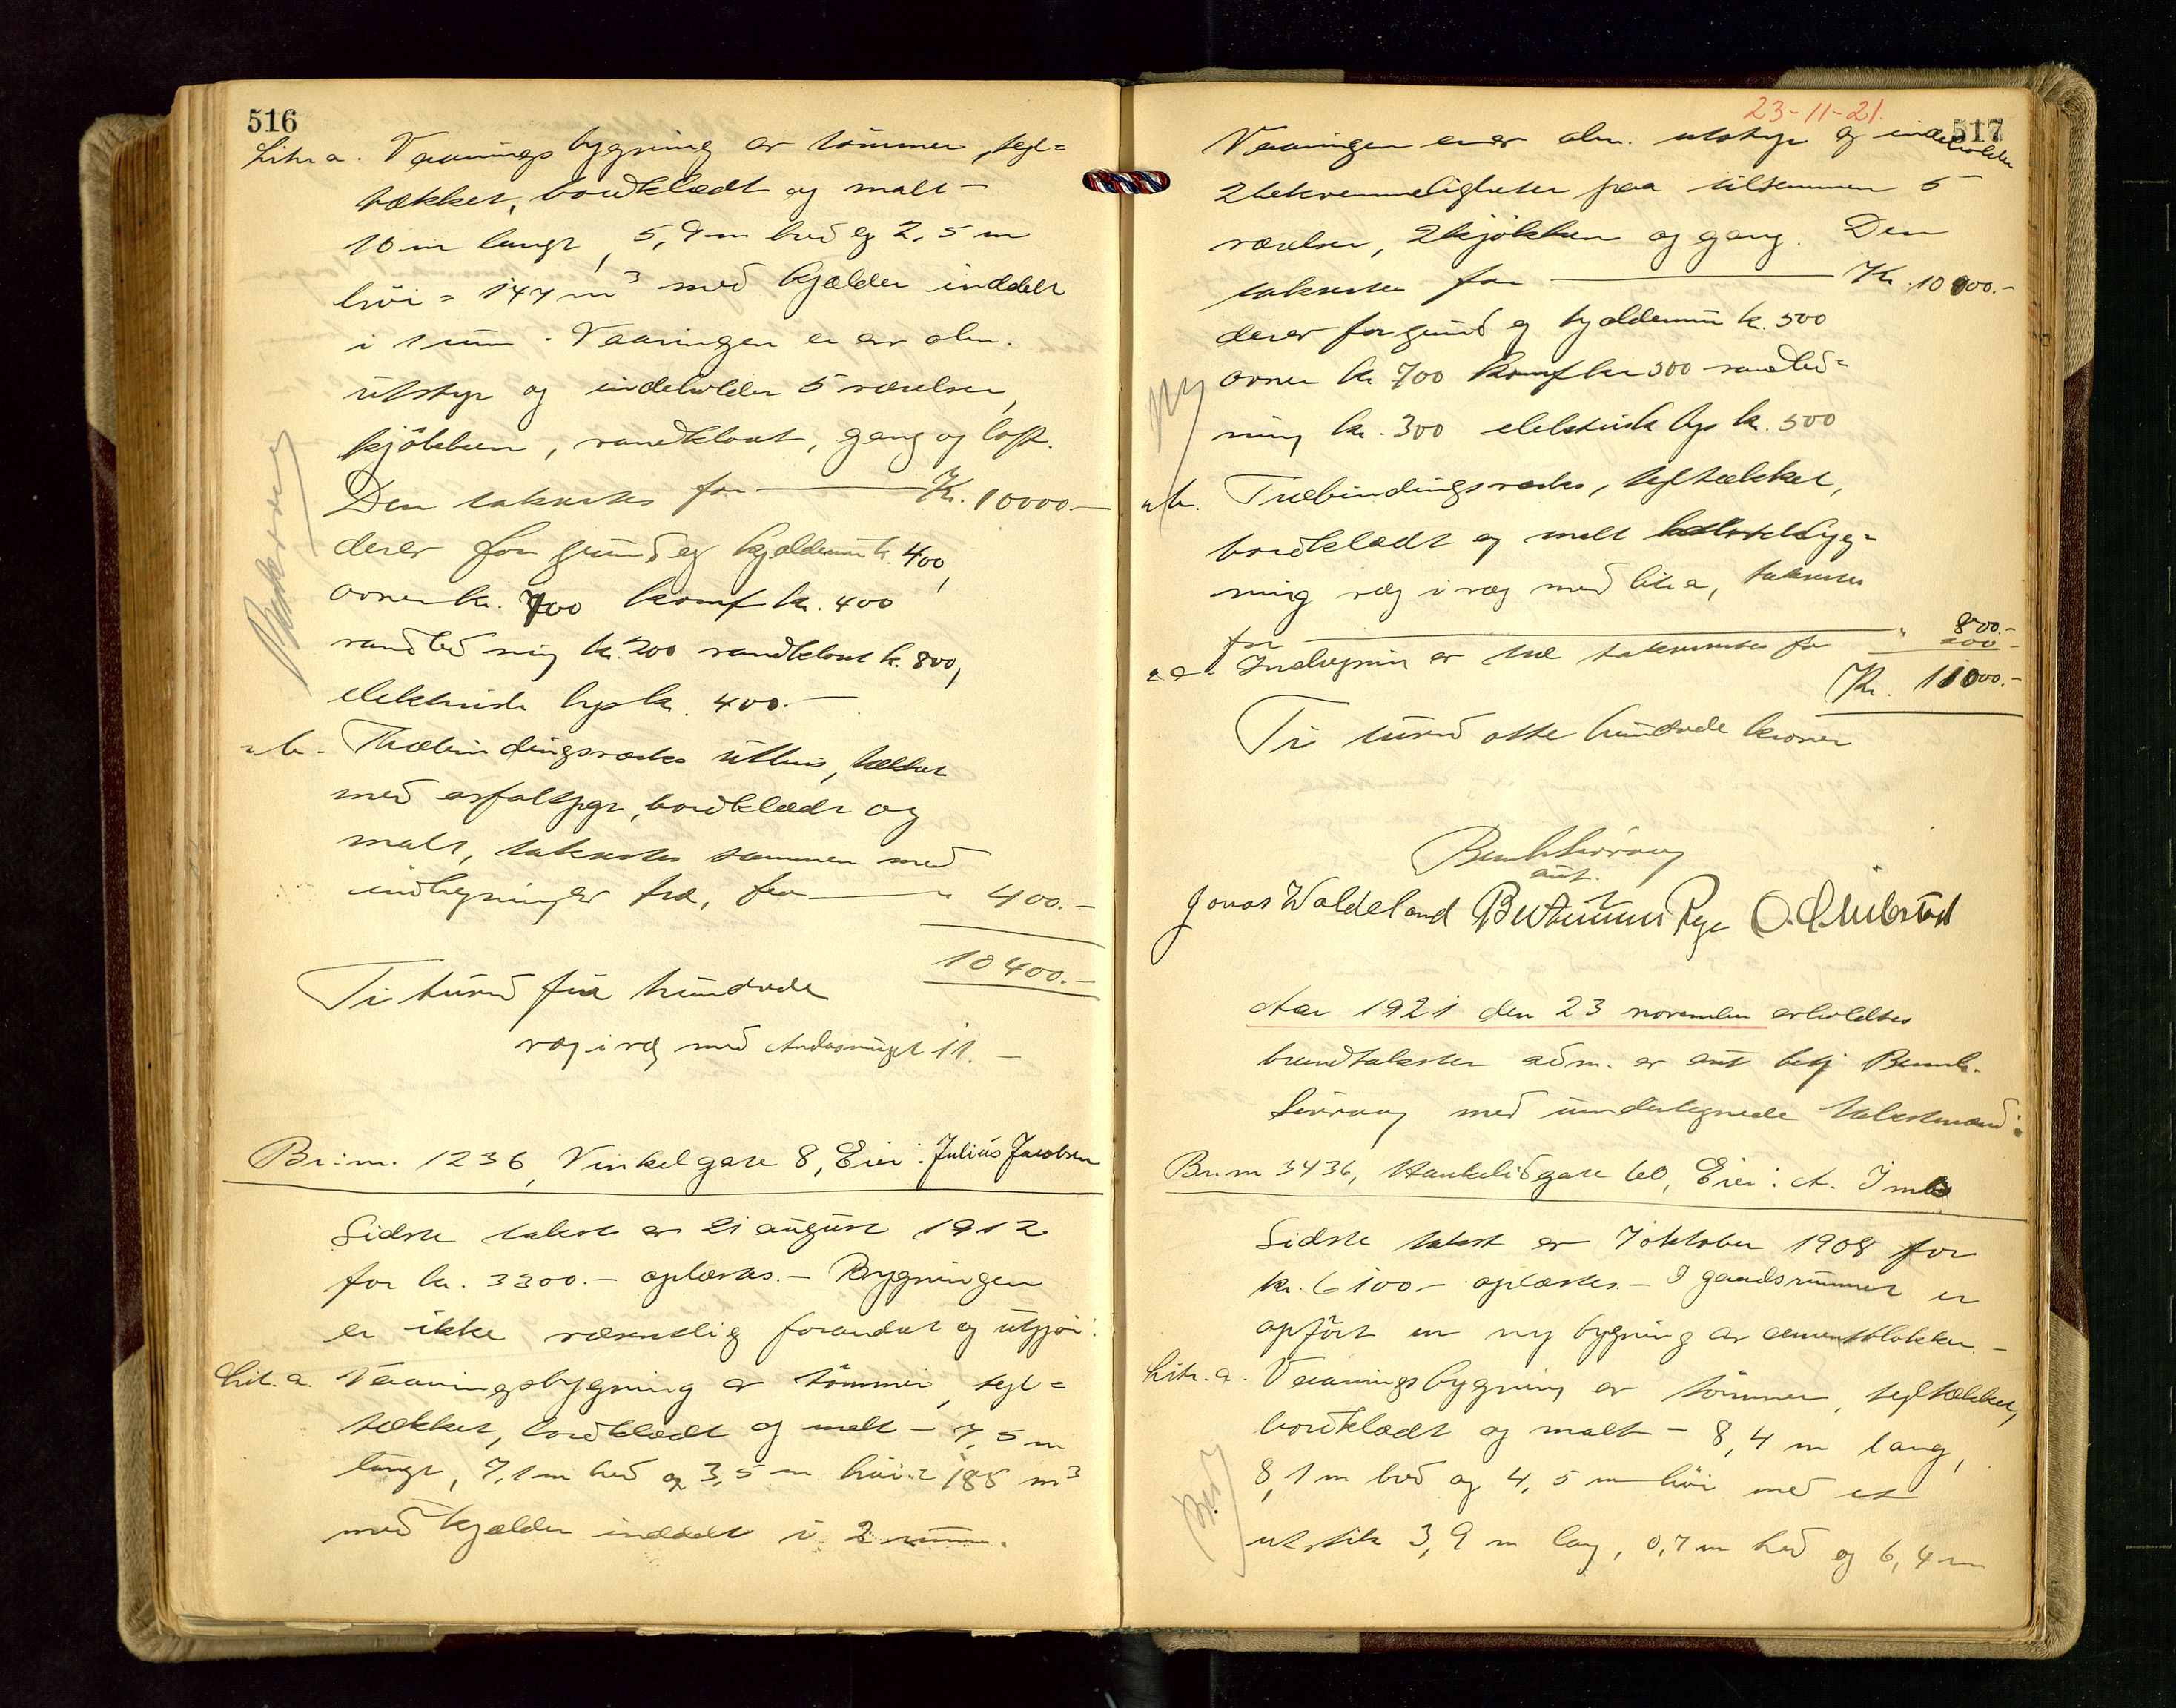 516
Litr a. Vaaningsbygning av tømmer, tegl=
tækket, bordklædt og malt –
10 m langt, 5,9 m bred og 2,5 m
høi = 147 m³ med kjælder inddelt
i 1 rum. Vaaningen er av alm.
utstyr og indeholder 5 værelser,
kjøkken, vandkloset, gang og loft.
Den takseres for — Kr. 10000.–
derav for grund og kjældermur kr. 400,
ovner kr. 700 komf kr. 400
vandledning kr. 200 vandklosett kr. 800,
elektrisk lys kr. 400.–
" b. Træbindingsverks uthus, tækket
med asfaltpap, bordklædt og
malt, takseres sammen med
indhegning av træ, for — " 400.–
10400.–
Ti tusind fire hundrede
væg i væg med Andasmuget 11.–
Br: nr. 1236, Vinkelgate 8, Eier: Julius Jacobsen
Sidste takst av 21 august 1912
for kr. 3300.– oplæstes.– Bygningen
er ikke væsentlig forandret og utgjør:
Lit. a. Vaaningsbygning av tømmer, tegl=
tækket, bordklædt og malt – 7,5 m
langt, 7,1 m bred og 3,5 m høi = 185 m³
med kjælder inddelt i 2 rum.
23-11-21.
517
Vaaningen er av alm. utstyr og indeholder
2 bekvemmeligheter paa tilsammen 5
værelser, 2 kjøkken og gang. Den
takseres for — Kr. 10000.–
derav for grund og kjældermur kr. 500
ovner kr 700 komf kr 300 vandled=
ning kr. 300 elektrisk lys kr. 500
Ny
" b. Træbindingsverks, tegltækket,
bordklædt og malt byg=
ning væg i væg med litr a, takseres
for — " 800.–
" c. Indhegning av træ takseres for 200.–
Kr. 11000.–
Ti tusind otte hundrede kroner
aut.
Jonas Waldeland B. Rasmus Rege O. Mibstad
Aar 1921 den 23 november avholdtes
brandtakster adm. av aut. besg. Bernh.
Sørvaag med undertegnede takstmænd:
Br. nr 3436, Haukelidgate 60, Eier: A. Ims
Sidste takst av 7 oktober 1908 for
kr. 6100– oplæstes.– I gaardsrummet er
opført en ny bygning av cementblokker.–
Litr. a. Vaaningsbygning av tømmer, tegltækket,
bordklædt og malt – 8,4 m lang,
8,1 m bred og 4,5 m høi med et
utstik 3,9 m lang, 0,7 m bred og 6,4 m